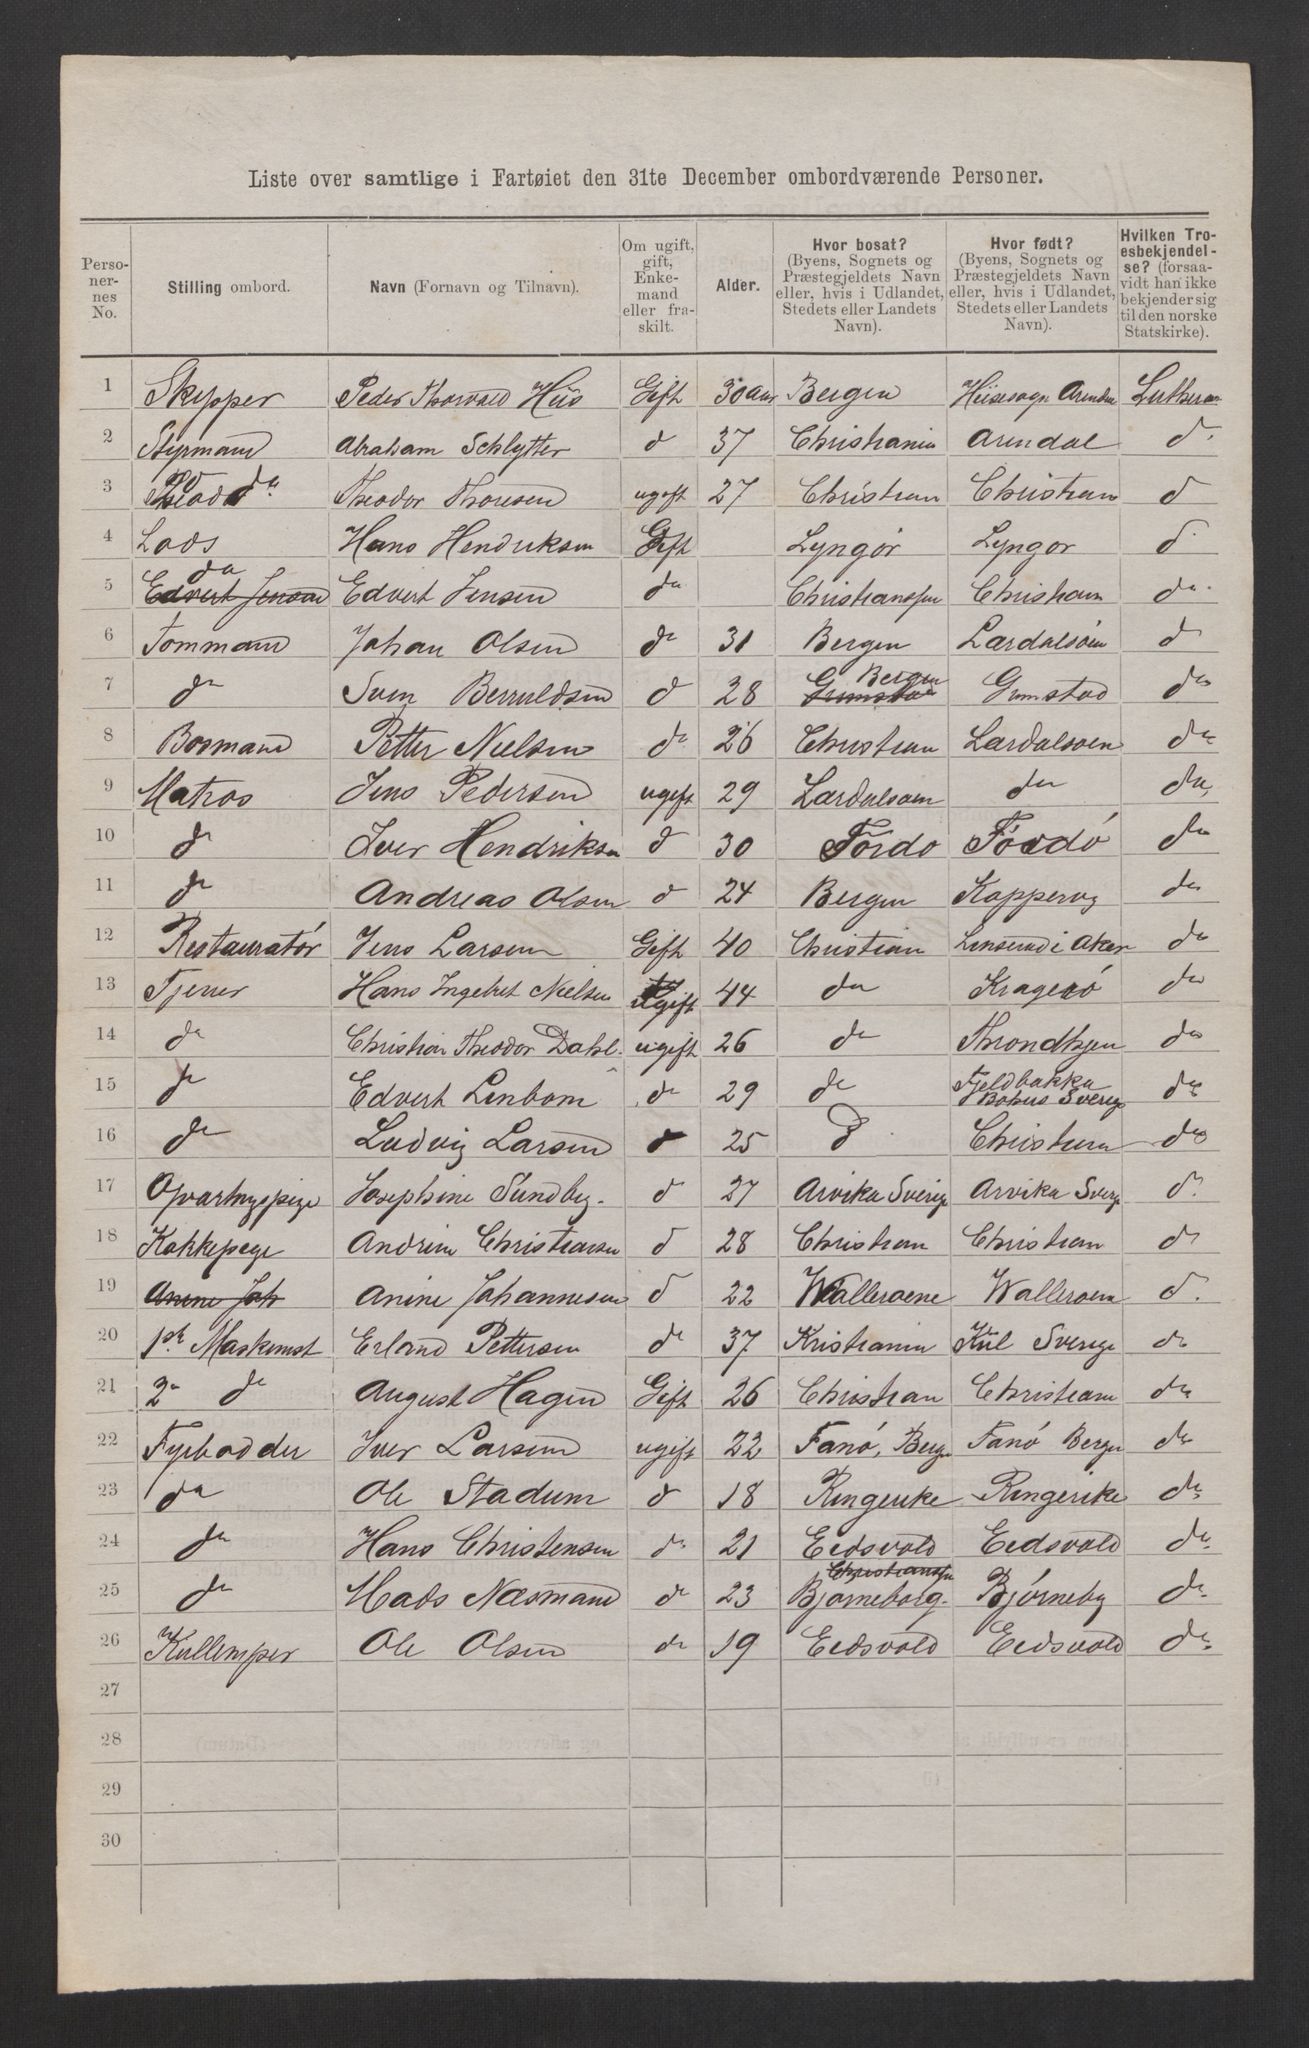 Liste over samtlige i Fartøiet den 31te December ombordværende Personer.
Perso-nernes No. | Stilling ombord. | Navn (Fornavn og Tilnavn). | Om ugift, gift, Enkemand eller fraskilt. | Alder. | Hvor bosat? (Byens, Sognets og Præstegjeldets Navn eller, hvis i Udlandet, Stedets eller Landets Navn). | Hvor født? (Byens, Sognets og Præstegjeldets Navn eller, hvis i Udlandet, Stedets eller Landets Navn). | Hvilken Troesbekjendelse? (forsaavidt han ikke bekjender sig til den norske Statskirke).
1 Skipper Peder Thorvald Hiis Gift 30 aar Bergen Hiisesogn Arendal Lutheran
2 Styrmand Abraham Schlytter d 37 Christiania Arendal d
3 do Theodor Thoresen ugift 27 Christian Christian d
4 Lods Hans Hendriksen Gift Lyngør Lyngør d
5 do Edvert Jensen do Christianssen Christiann do
6 Tommand Johan Olsen do 31 Bergen Lardalsøen d
7 do Sven Berruldsen d 28 Bergen Grimstad do
8 Bosmand Petter Nielsen do 26 Christian Lardalsoen do
9 Matros Jens Pedersen ugift 29 Lardalsoen do do
10 do Iver Hendriksen d 30 Fordo Fórdó do
11 do Andreas Olsen d 24 Bergen Koppervig do
12 Restauratór Jens Larsen Gift 40 Christian i Aker do
13 Tjener Hans Ingebret Nielsen ugift 44 do Krageró do
14 do Christian Theodor Dahl ugift 26 do Throndhjen do
15 do Edvert Linbom do 29 do Fjeldbakka Bohus Sverig do
16 do Ludvig Larsen d 25 d Christian do
17 Opvartngspige Josephine Sundby d 27 Arvika Sverige Arvika Sverg d
18 Kokkepege Andrine Christiansen d 28 Christian Christian d
19 Anine Joh Anine Johannesen d 22 Walleroene Walleroen d.
20 1ste Maskinist Erland Pettersen do 37 Kristiania Kiil Sverige do
21 2n d August Hagen Gift 26 Christian Christiann do
22 Fyrbodder Iver Larsen ugift 22 Fanó, Berge Fanó Berge do
23 do Ole Stadum d 18 Ringerike Ringerike do
24 do Hans Christensen do 21 Eedsvold Eedsvold do
25 do Mads Næsmand do 23 Bjorneborg Bjørneby do
26 Kullemper Ole Olsen do 19 Eedsvold Eedsvold do
27
28
29
30